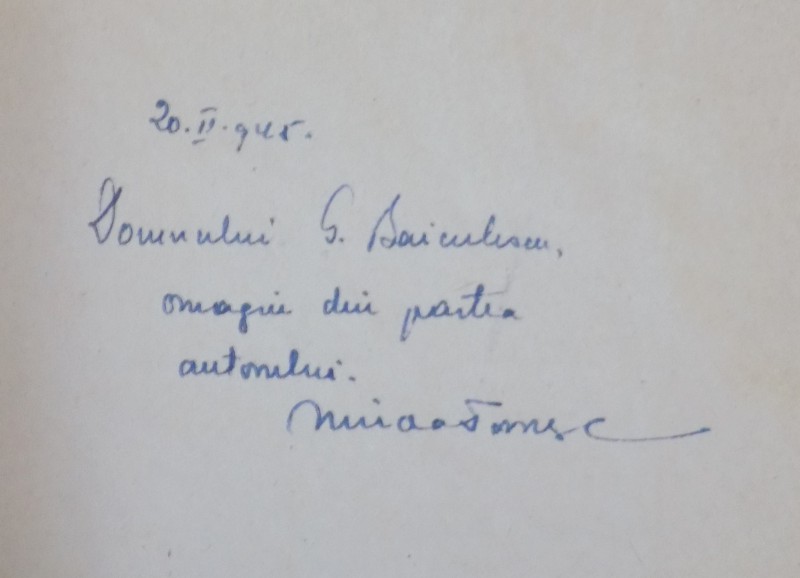 20.II.945.
Domnului G. Baiculescu,
omagiu din partea
autorului.
Mircea Tomesc